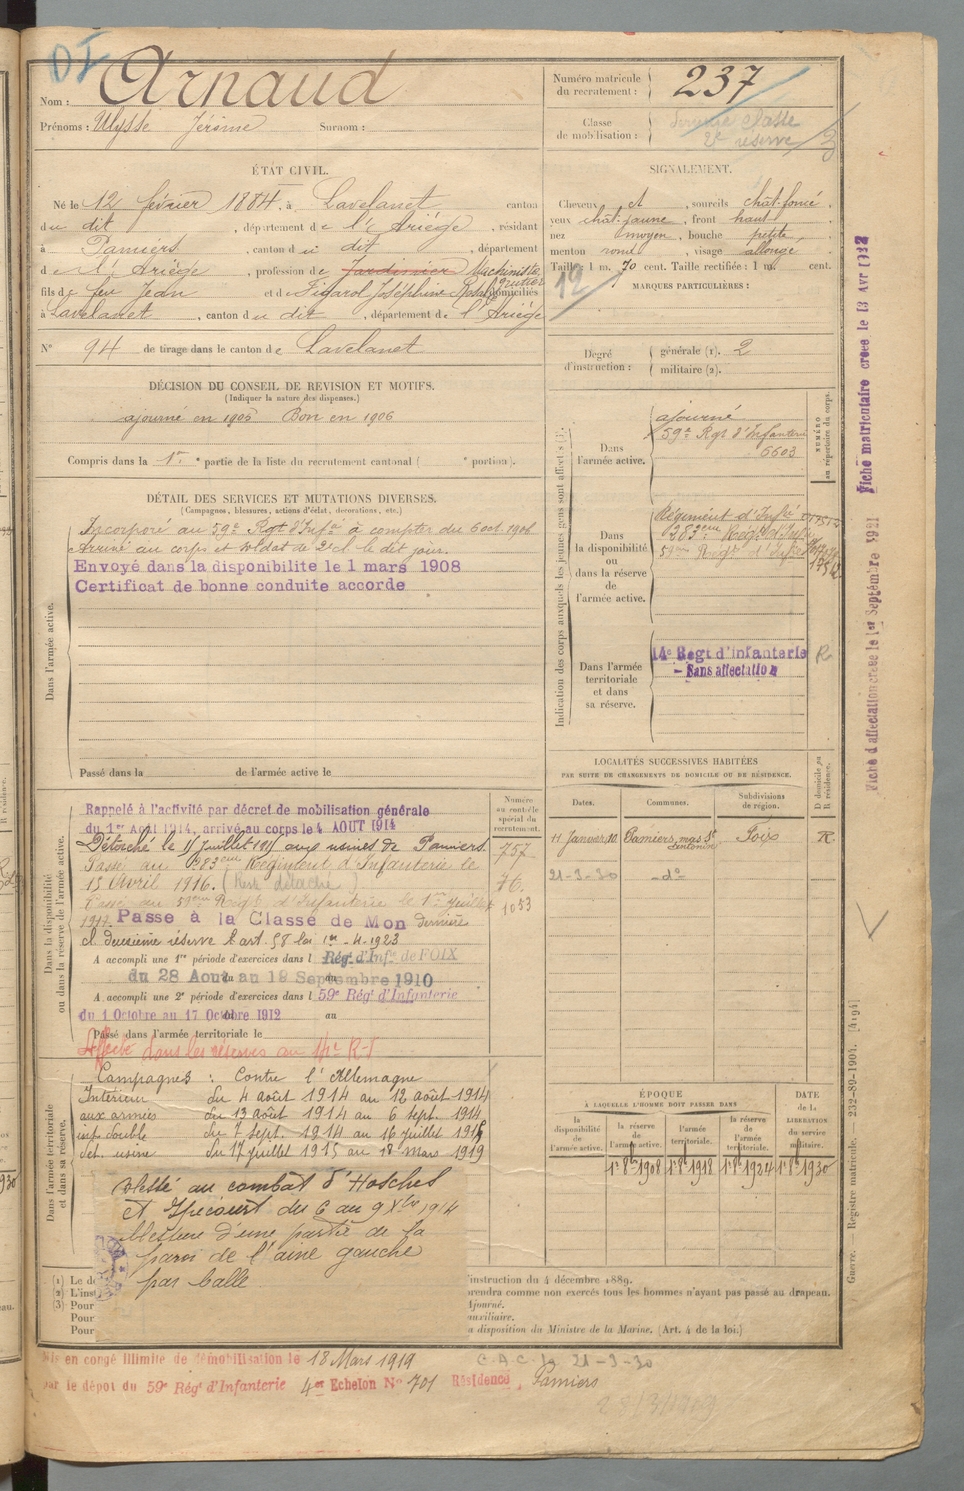 DI
Nom : Arnaud
Prénoms : Ulysse Jérôme Surnom :
Numéro matricule du recrutement : 237
Classe de mobilisation : Dernière Classe
2e réserve 3
ÉTAT CIVIL.
Né le 12 février 1884, à Lavelanet canton
du dit, département de l'Ariège, résidant
à Pamiers, canton du dit, département
de l'Ariège, profession de Jardinier Machiniste
fils de feu Jean et de Figarol Joséphine Rosalie domiciliés
à Lavelanet, canton du dit, département de l'Ariège
N° 94 de tirage dans le canton de Lavelanet
SIGNALEMENT.
Cheveux et, sourcils chât. foncé
yeux chât. jaune, front haut
nez moyen, bouche petite
menton rond, visage allongé
Taille : 1 m. 70 cent. Taille rectifiée : 1 m. cent.
12
MARQUES PARTICULIÈRES :
Degré d'instruction : générale (1). 2
militaire (2).
DÉCISION DU CONSEIL DE REVISION ET MOTIFS.
(Indiquer la nature des dispenses.)
ajourné en 1905 Bon en 1906
Compris dans la 1re partie de la liste du recrutement cantonal ( e portion).
DÉTAIL DES SERVICES ET MUTATIONS DIVERSES.
(Campagnes, blessures, actions d'éclat, décorations, etc.)
Dans l'armée active.
Incorporé au 59e Rgt d'Infie à compter du 6 oct. 1906
Arrivé au corps et soldat de 2e cl. le dit jour.
Envoyé dans la disponibilite le 1 mars 1908
Certificat de bonne conduite accorde
Passé dans la de l'armée active le
Indication des corps auxquels les jeunes gens sont affectés (3).
NUMÉRO au répertoire du corps.
Dans l'armée active.
ajourné
59e Rgt d'Infanterie
6603
Dans la disponibilité ou dans la réserve de l'armée active.
Régiment d'Infie
283eme Régt d'Infie
59me Régt d'Infie
Dans l'armée territoriale et dans sa réserve.
14e Regt d'infanterie
- Sans affectation
R
Fiche matriculaire créée le 13 Avr 1932
Fiche d'affectation créée le 1er Septembre 1921
LOCALITÉS SUCCESSIVES HABITÉES
PAR SUITE DE CHANGEMENTS DE DOMICILE OU DE RÉSIDENCE.
Dates. Communes. Subdivisions de région. D domicile ou R résidence.
11 Janvier 10. Pamiers, mas St Foix R.
21-3-30 -do-
Dans la disponibilité ou dans la réserve de l'armée active.
Numéro au contrôle spécial du recrutement.
Rappelé à l'activité par décret de mobilisation générale
du 1er Août 1914, arrivé au corps le 4 AOUT 1914
Détaché le 17 juillet 1915 aux usines de Pamiers. 757
Passé au 283eme Régiment d'Infanterie le
13 Avril 1916. (Reste détaché) 76.
Passé au 59eme Régt d'Infanterie le 1er Juillet 1053
1917. Passe à la Classe de Mon dernière
cl deuxième réserve art. 58 loi 1er-4-1923
A accompli une 1re période d'exercices dans l Régt d'Infie de FOIX
du 28 Aout au 19 Septembre 1910
A accompli une 2e période d'exercices dans l 59e Régt d'Infanterie
du 1 Octobre au 17 Octobre 1912 au
Passé dans l'armée territoriale le
Affecté dans les réserves au 14e R.I
Dans l'armée territoriale et dans sa réserve.
Campagnes : Contre l'Allemagne
Intérieur du 4 août 1914 au 12 août 1914
aux armées du 13 août 1914 au 6 sept. 1914
int. double du 7 sept. 1914 au 16 juillet 1915
dét. usine du 17 juillet 1915 au 18 mars 1919
Blessé au combat d'Hosches
et Ypécourt du 6 au 9 Xbre 1914
blessure d'une partie de la
paroi de l'aine gauche
par balle
ÉPOQUE
À LAQUELLE L'HOMME DOIT PASSER DANS
la disponibilité de l'armée active.
la réserve de l'armée active. 1er 8bre 1908
l'armée territoriale. 1er 8bre 1918
la réserve de l'armée territoriale. 1er 8bre 1924
DATE de la LIBÉRATION du service militaire. 1er 8bre 1930
(1) Le de
(2) L'inst
(3) Pour
Pour
Pour
l'instruction du 4 décembre 1889.
prendra comme non exercés tous les hommes n'ayant pas passé au drapeau.
Ajourné.
auxiliaire.
a disposition du Ministre de la Marine. (Art. 4 de la loi.)
Guerre. Registre matricule. 232-89-1904. [4194]
Mis en congé illimité de démobilisation le 18 Mars 1919
par le dépôt du 59e Régt d'Infanterie 4e Echelon N° 701 Résidence, Pamiers
C.A.C. le 21-3-30